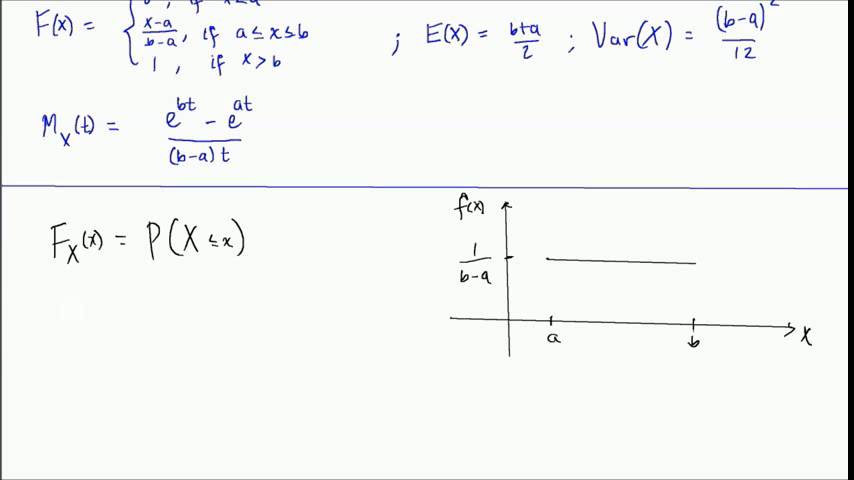 F(x) = { x-a/b-a, if a ≤ x ≤ b ; E(X) = b+a/2 ; Var(X) = (b-a)²/12
1, if x > b
M_X(t) = e^bt - e^at / (b-a)t
F_X(x) = P(X ≤ x)
f(x)
1/b-a
a
b
x